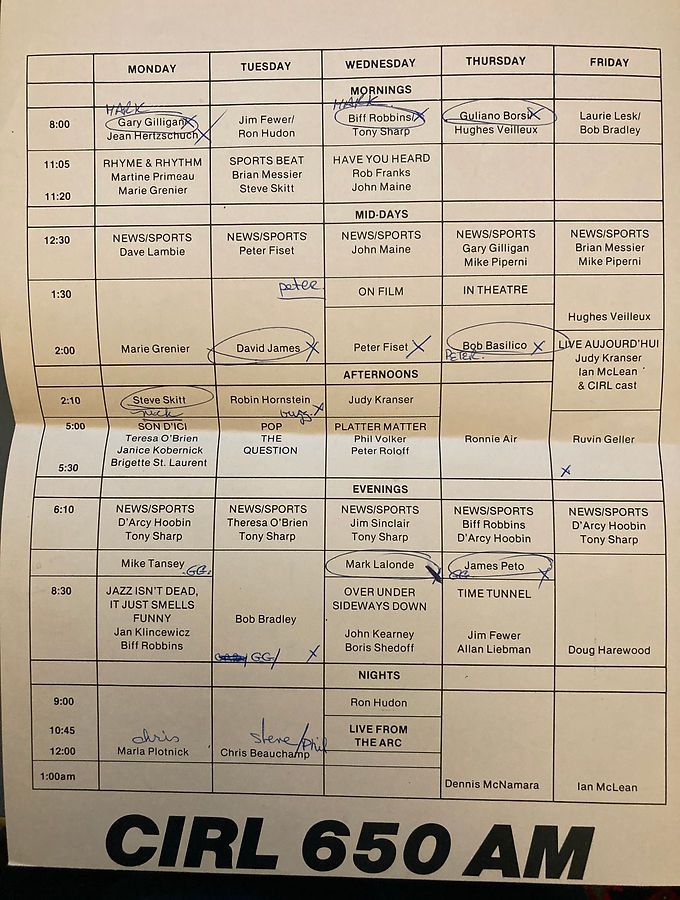 MONDAY TUESDAY WEDNESDAY THURSDAY FRIDAY
MORNINGS
MARK MARK
8:00
Gary Gilligan/
Jean Hertzschuch
Jim Fewer/
Ron Hudon
Biff Robbins/
Tony Sharp
Guliano Borsi
Hughes Veilleux
Laurie Lesk/
Bob Bradley
11:05
11:20
RHYME & RHYTHM
Martine Primeau
Marie Grenier
SPORTS BEAT
Brian Messier
Steve Skitt
HAVE YOU HEARD
Rob Franks
John Maine
MID-DAYS
12:30
NEWS/SPORTS
Dave Lambie
NEWS/SPORTS
Peter Fiset
NEWS/SPORTS
John Maine
NEWS/SPORTS
Gary Gilligan
Mike Piperni
NEWS/SPORTS
Brian Messier
Mike Piperni
1:30
2:00
Marie Grenier
peter
David James X
ON FILM
Peter Fiset X
IN THEATRE
Bob Basilico X
PETER.
Hughes Veilleux
LIVE AUJOURD'HUI
Judy Kranser
Ian McLean
& CIRL cast
AFTERNOONS
2:10
Steve Skitt
Robin Hornstein
X
Judy Kranser
5:00
5:30
SON D'ICI
Teresa O'Brien
Janice Kobernick
Brigette St. Laurent
POP
THE
QUESTION
PLATTER MATTER
Phil Volker
Peter Roloff
Ronnie Air
Ruvin Geller
X
EVENINGS
6:10
NEWS/SPORTS
D'Arcy Hoobin
Tony Sharp
NEWS/SPORTS
Theresa O'Brien
Tony Sharp
NEWS/SPORTS
Jim Sinclair
Tony Sharp
NEWS/SPORTS
Biff Robbins
D'Arcy Hoobin
NEWS/SPORTS
D'Arcy Hoobin
Tony Sharp
Mike Tansey
GG.
Mark Lalonde
James Peto
GG. X
8:30
JAZZ ISN'T DEAD,
IT JUST SMELLS
FUNNY
Jan Klincewicz
Biff Robbins
Bob Bradley
GG/ X
OVER UNDER
SIDEWAYS DOWN
John Kearney
Boris Shedoff
TIME TUNNEL
Jim Fewer
Allan Liebman
Doug Harewood
NIGHTS
9:00
10:45
12:00
1:00am
chris
Marla Plotnick
Steve/Phil
Chris Beauchamp
Ron Hudon
LIVE FROM
THE ARC
Dennis McNamara
Ian McLean
CIRL 650 AM